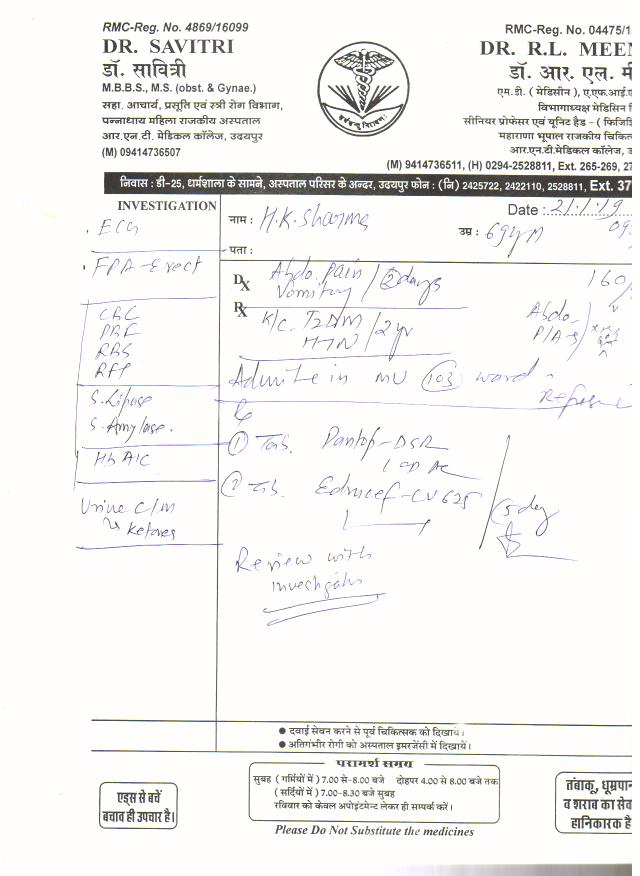 RMC-Reg. No. 4869/16099
DR. SAVITRI
डॉ. सावित्री
M.B.B.S., M.S. (obst. & Gynae.)
सहा. आचार्य, प्रसूति एवं स्त्री रोग विभाग,
पन्नाधाय महिला राजकीय अस्पताल
आर.एन.टी. मेडिकल कॉलेज, उदयपुर
(M) 09414736507
RMC-Reg. No. 04475/1
DR. R.L. MEEN
डॉ. आर. एल. मी
एम.डी. ( मेडिसीन ), ए.एफ.आई.ए
विभागाध्यक्ष मेडिसिन वि
सीनियर प्रोफेसर एवं यूनिट हैड - ( फिजिि
महाराणा भूपाल राजकीय चिकित
आर.एन.टी.मेडिकल कॉलेज, उ
(M) 9414736511, (H) 0294-2528811, Ext. 265-269, 27
निवास : डी-25, धर्मशाला के सामने, अस्पताल परिसर के अन्दर, उदयपुर फोन : (नि) 2425722, 2422110, 2528811, Ext. 37
INVESTIGATION
ECG
FPA-Erect
CBC
PBF
RBS
RFT
S. Lipase
S. Amylase.
HbA1C
Urine C/M
Ketones
नाम : H.K. Sharma
Date : 21/1/19
उम्र : 69yM
पता :
Dx Abdo. Pain / 2 days
Vomiting
160/
Rx K/c. T2DM / 2yr
HTN
Abdo.
P/A-S
Admite in MU 103 ward
① Tab. Pantop-DSR
1 OD AC
② Tab. CV 625
5 day
Review with
Investigatn
● दवाई सेवन करने से पूर्व चिकित्सक को दिखाये।
● अतिगंभीर रोगी को अस्पताल इमरजेंसी में दिखायें।
परामर्श समय
सुबह ( गर्मियों में ) 7.00 से-8.00 बजे दोहपर 4.00 से 8.00 बजे तक
( सर्दियों में ) 7.00-8.30 बजे सुबह
रविवार को केवल अपोइंटमेन्ट लेकर ही सम्पर्क करें।
Please Do Not Substitute the medicines
एड्स से बचें
बचाव ही उपचार है।
तंबाकू, धूम्रपान
व शराब का सेव
हानिकारक है